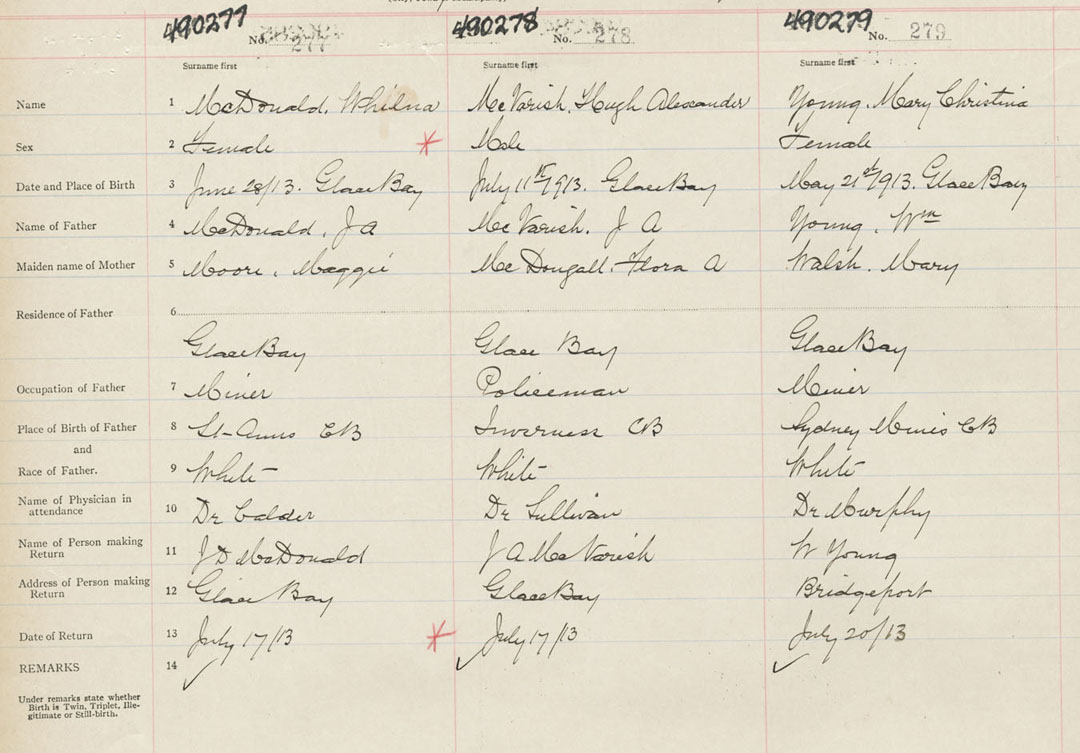 490277 490278 490279
No. 277 No. 278 No. 279
Surname first Surname first Surname first
Name 1 McDonald, Whilna McVarish, Hugh Alexcander Young, Mary Christina
Sex 2 Female Male Female
Date and Place of Birth 3 June 28/13. Glace Bay July 11th/1913. Glace Bay May 21st/1913. Glace Bay
Name of Father 4 McDonald, J A McVarish, J A Young, Wm
Maiden name of Mother 5 Moore, Maggie McDougall, Flora A Walsh, Mary
Residence of Father 6
Glace Bay Glace Bay Glace Bay
Occupation of Father 7 Miner Policeman Miner
Place of Birth of Father 8 St-Anns CB Inverness CB Sydney Mines CB
and
Race of Father. 9 White White White
Name of Physician in
attendance 10 Dr Calder Dr Sullivan Dr Murphy
Name of Person making
Return 11 J D McDonald J A McVarish W Young
Address of Person making
Return 12 Glace Bay Glace Bay Bridgeport
Date of Return 13 July 17/13 July 17/13 July 20/13
REMARKS 14
Under remarks state whether
Birth is Twin, Triplet, Ille-
gitimate or Still-birth.